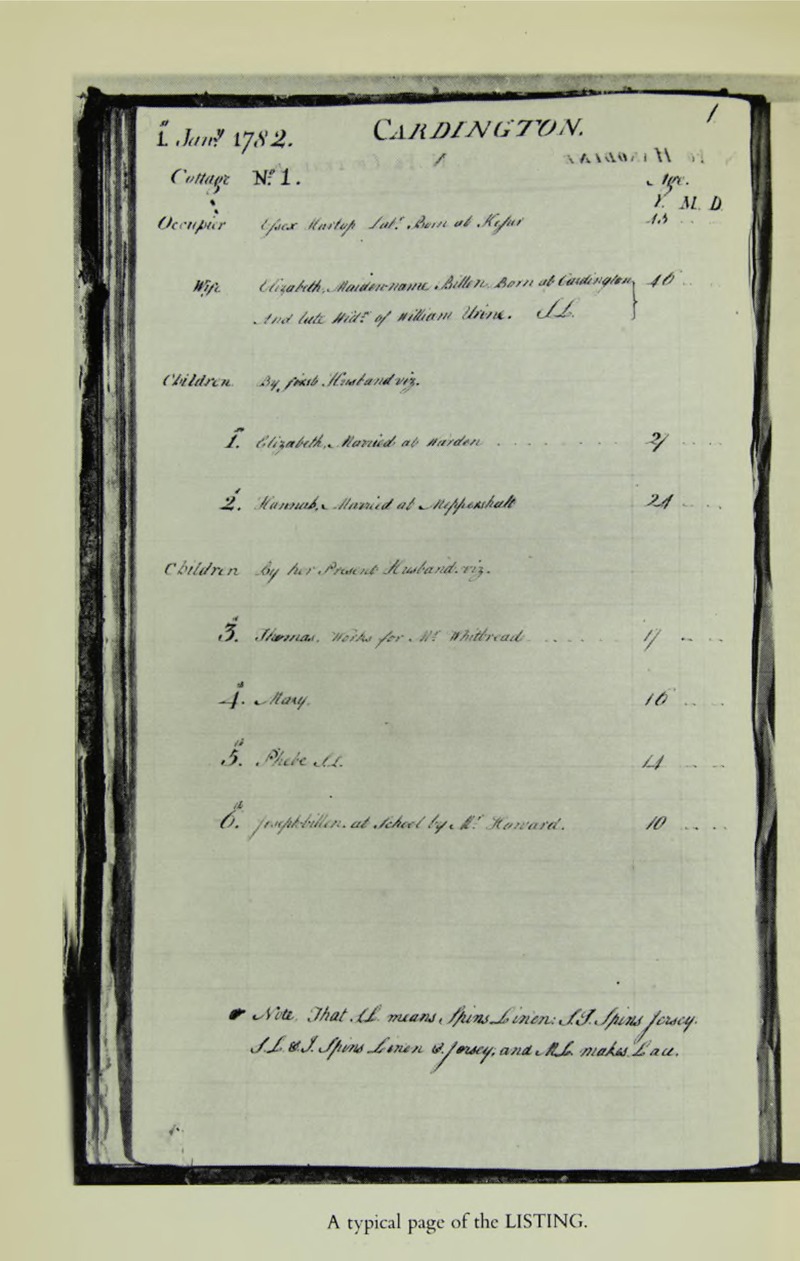 1
1. Jan.y 1782. CARDINGTON.
Cottage N.o 1. Age.
Y. M. D.
Occupier Essex Hartop Lab.r Born at
Wife Elizabeth, Maiden-name Billen. Born at Cardington, 46
And late Wid.w of William SL.
Children By first Husband viz.
1. Elizabeth, Married at Warden 27
2. Hannah, Married at Meppershall 24
Children By her Present Husband. viz.
3. Thomas. Works for Mr. Whitbread 17
4. Mary. 16
5. Phebe SL. 14
6. Joseph-billen. at School by Mr. Howard. 10
Note. That SL means, Spins Linen: S.J. Spins Jersey.
SL & J. Spins Linen & Jersey, and ML. makes Lace.
A typical page of the LISTING.